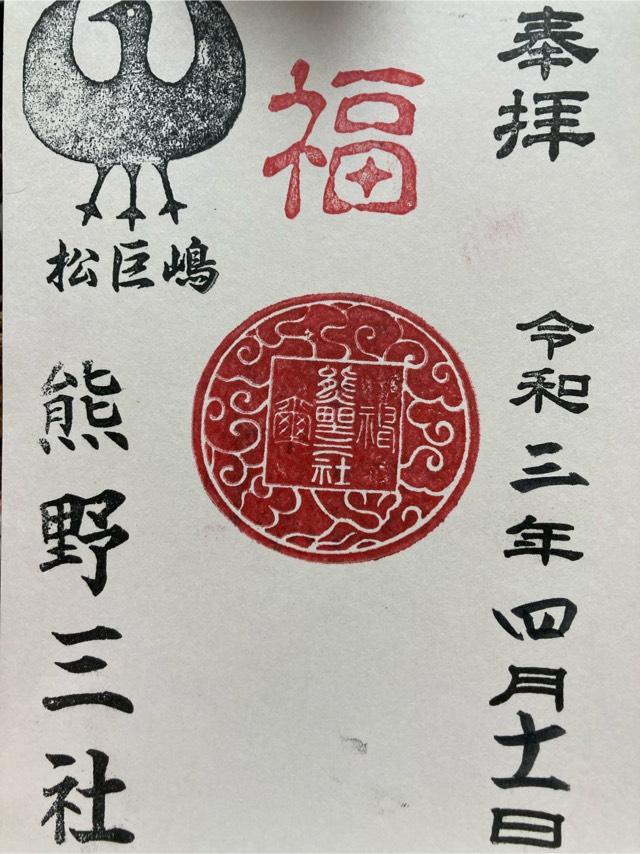 奉拝
令和三年四月十一日
福
熊野三社
松巨嶋
熊野三社